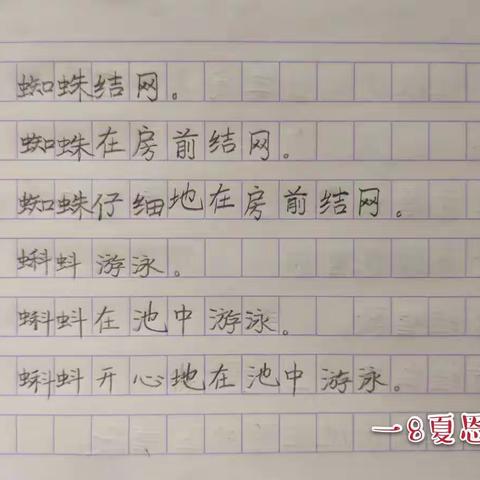 蜘蛛结网。
蜘蛛在房前结网。
蜘蛛仔细地在房前结网。
蝌蚪游泳。
蝌蚪在池中游泳。
蝌蚪开心地在池中游泳。
一8夏恩